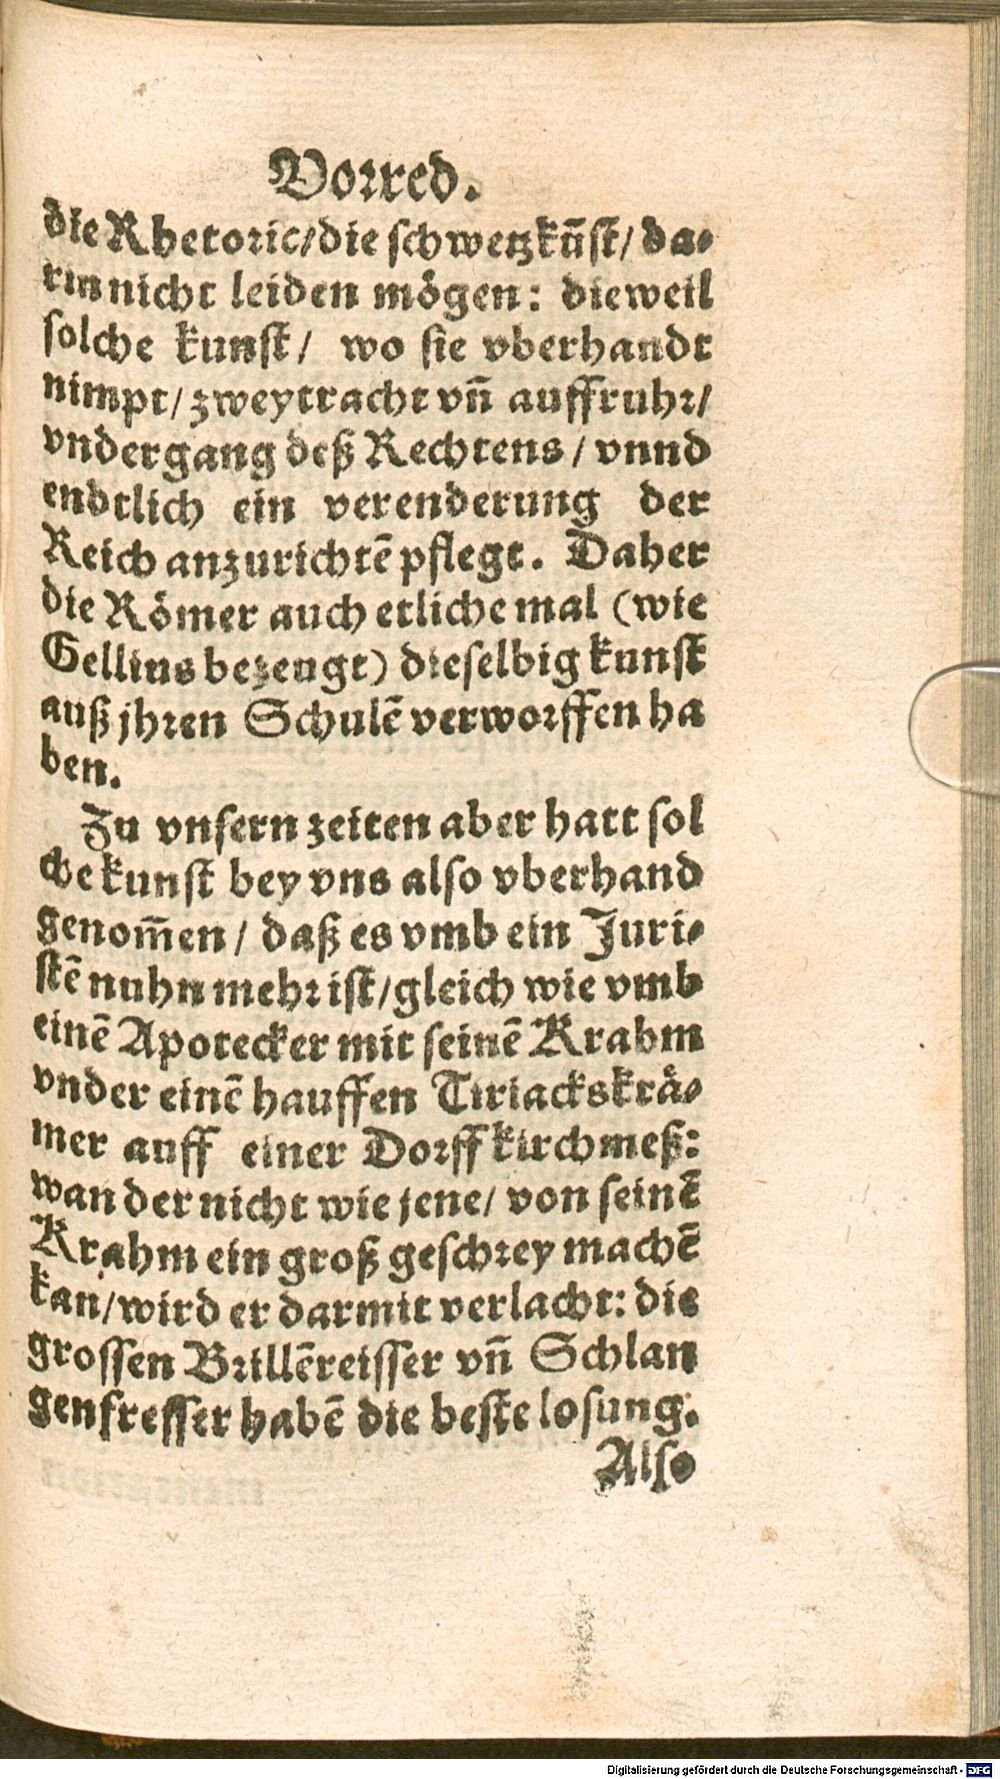 Vorred.
die Rhetoric/die schwetzkūst/ da-
rin nicht leiden mögen: dieweil
solche kunst/ wo sie vberhandt
nimpt/ zweytracht vn̄ auffruhr/
vndergang deß Rechtens / vnnd
endtlich ein verenderung der
Reich anzurichtē pflegt. Daher
die Römer auch etliche mal (wie
Gellius bezeugt) dieselbig kunst
auß jhren Schulē verworffen ha
ben.
Zu vnsern zeiten aber hatt sol
che kunst bey vns also vberhand
genom̄en / daß es vmb ein Juri-
stē nuhn mehr ist/gleich wie vmb
einē Apotecker mit seinē Krahm
vnder einē hauffen Tiriackskrä-
mer auff einer Dorffkirchmeß:
wan der nicht wie jene/ von seinē
Krahm ein groß geschrey machē
kan/wird er darmit verlacht: die
grossen Brillēreisser vn̄ Schlan
genfresser habē die beste losung.
Also
Digitalisierung gefördert durch die Deutsche Forschungsgemeinschaft - DFG